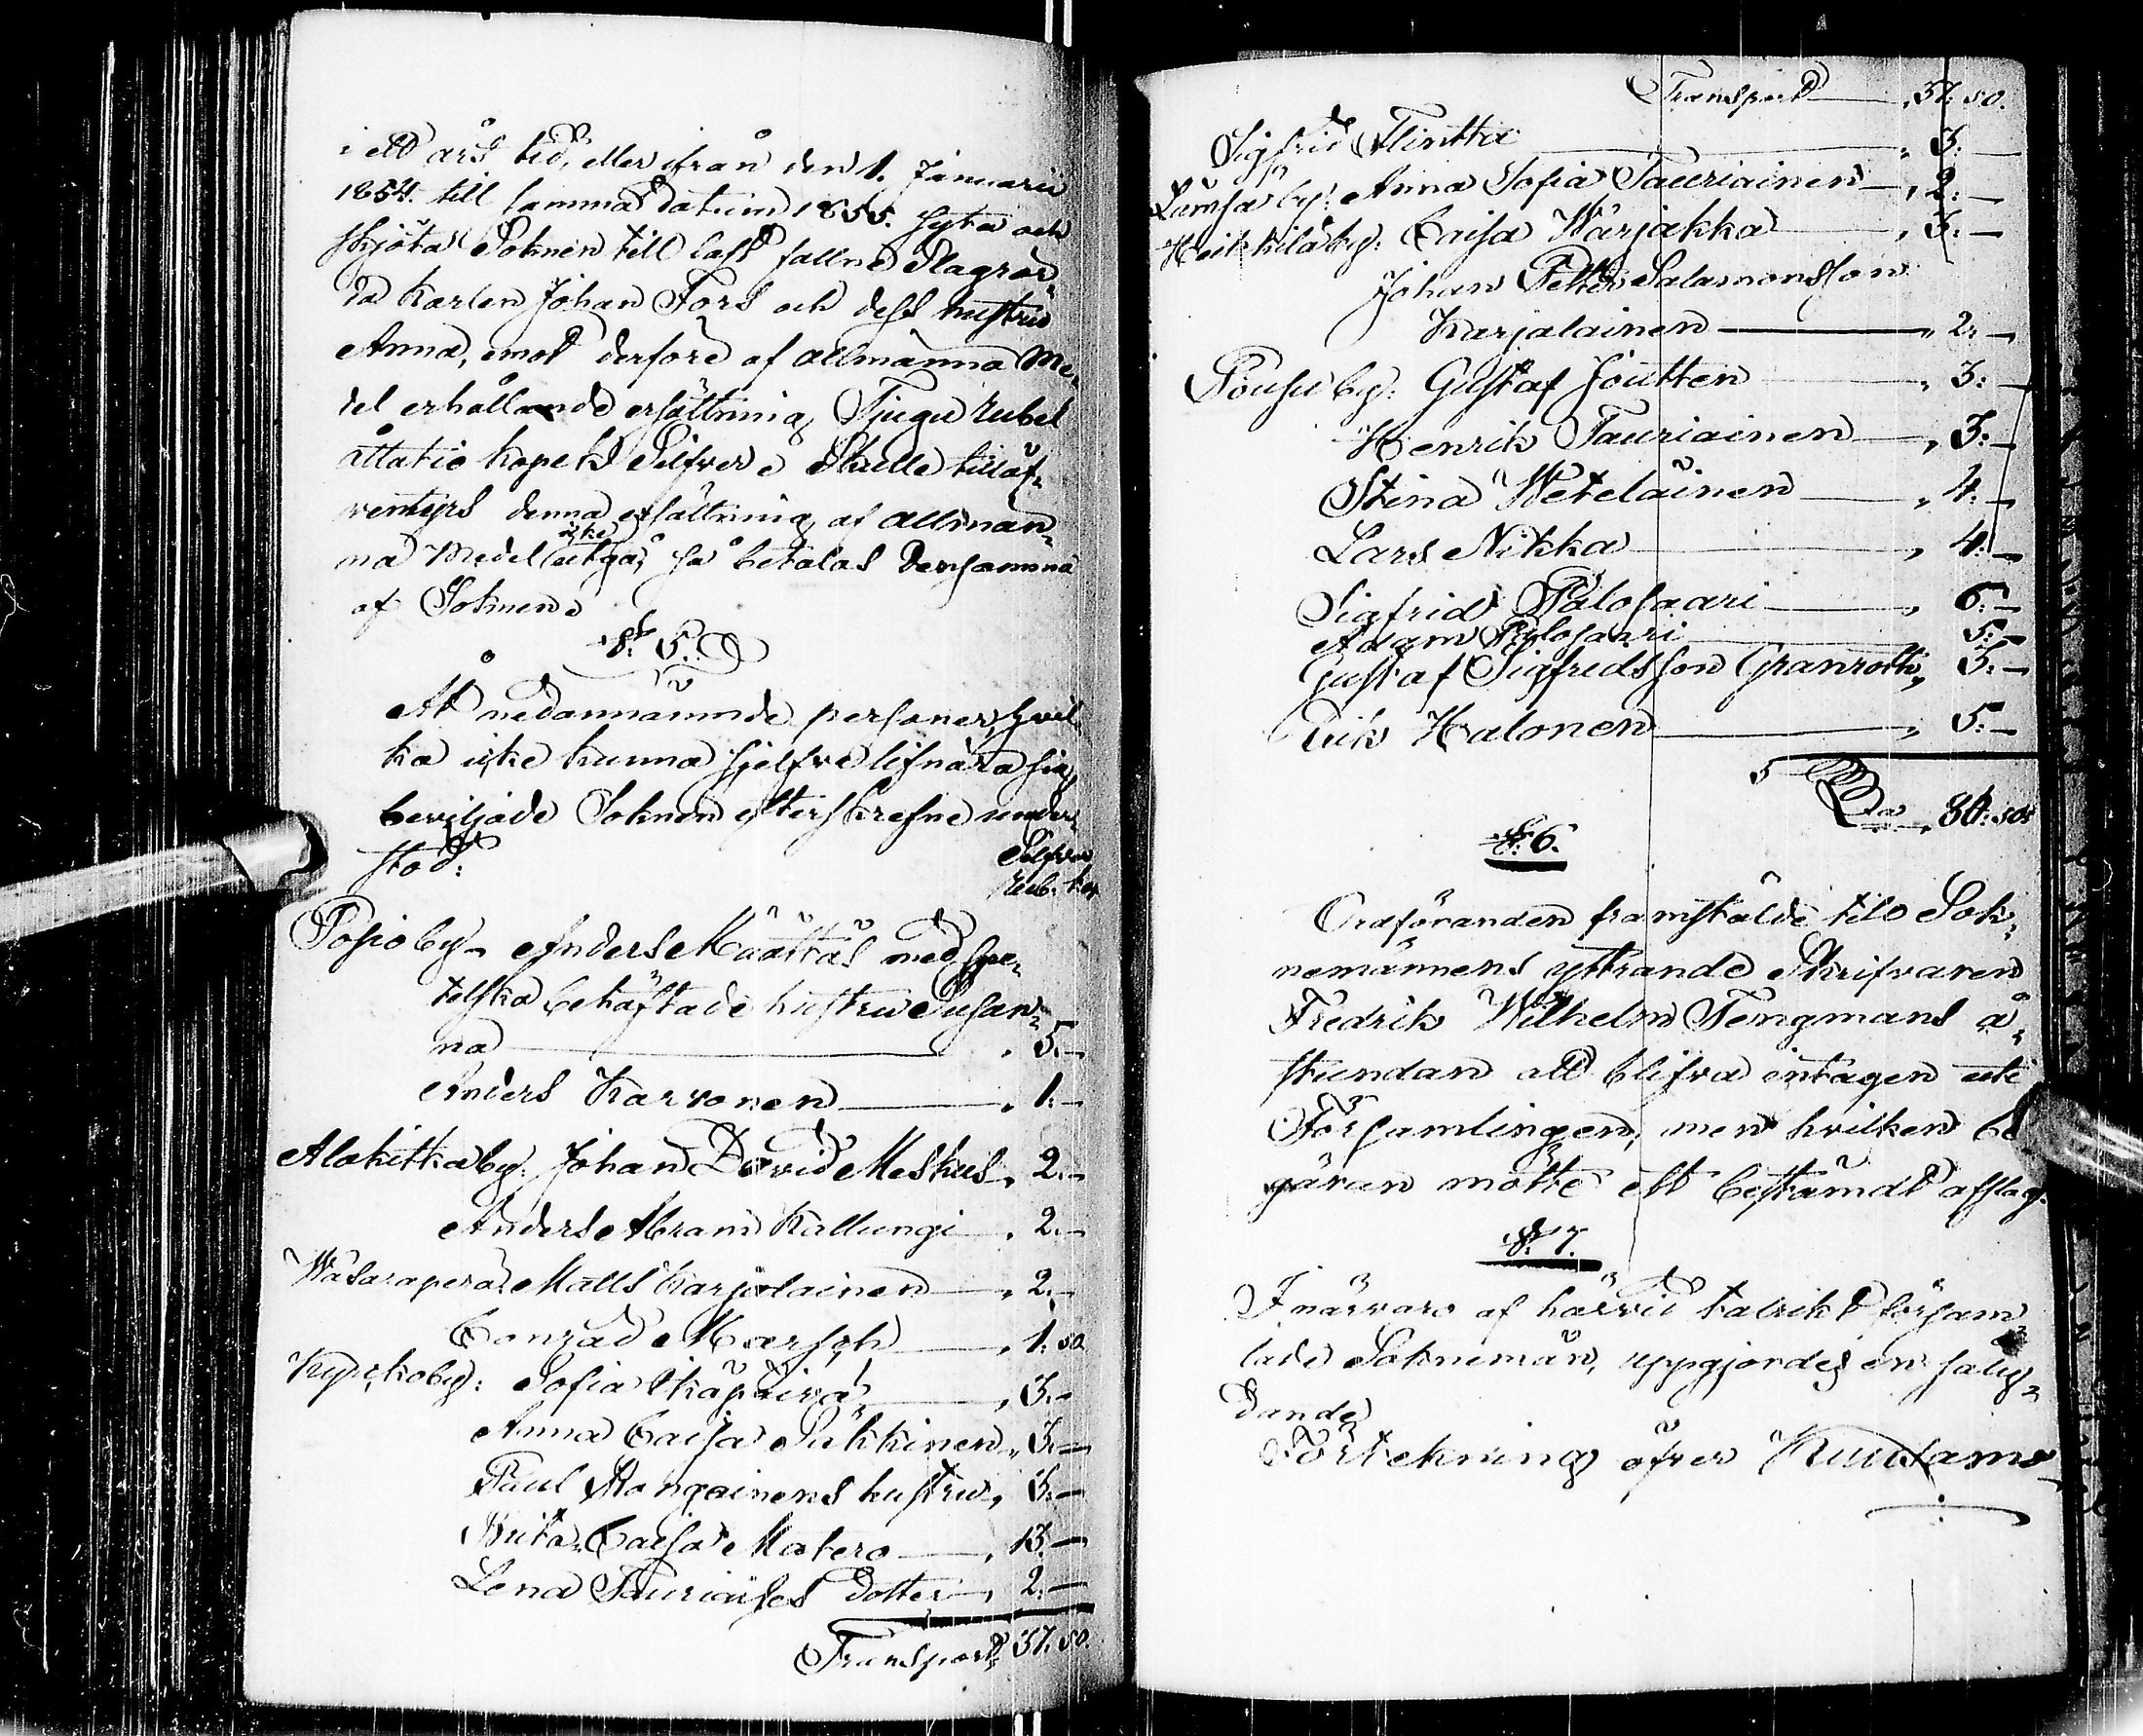 i ett års tid, eller ifrån den 1. Januarii
1854. till samma datum 1855. sysla och
skjöta Soknen till last fallne Slagrör-
da Karlen Johan Fors och dess hustru
Anna, emot derföre af allmänna Me-
del erhållande ersättning, Tjugu rubel
åttatio kopek Silfver. Skulle tilläf-
ventyrs denna ersättning af allmän-
na Medel icke utgå, så betalas densamma
af Soknen.
§ 5.
At nedannämnde personer, hvil-
ka icke kunna sjelfve lifnära sig,
beviljade Soknen efterskrefne under-
stöd: Silfver
Rub. kop.
Posio by. Anders Määttäs med spe-
telska behäftade hustru Susan-
na „ 5.—
Anders Karvonen „ 1.—
Alakitka by. Johan David Meskus „ 2.—
Anders Abram Kallungi „ 2.—
Wasarapera. Matts Karjalainen „ 2.—
Conrad Marsch „ 1. 50
Kyrckoby: Sofia Skåpäivä „ 3.—
Anna Caisa Säkkinen „ 3.—
Paul Mangainens hustru „ 3.—
Brita Caisa Matero „ 13.—
Lena Tauriaises dotter „ 2.—
Transport 37. 50.
Transport „ 37. 50.
Sigfrid Flinttu „ 3.—
Lämsä by: Anna Sofia Tauriainen „ 2.—
Heikkilä by: Caisa Wärjakka „ 3.—
Johan Petter Salamonsson
Karjalainen „ 2.—
Pousu by: Gustaf Joutten „ 3.—
Henrik Tauriainen „ 3.—
Stina Weteläinen „ 4.—
Lars Nikka „ 4.—
Sigfrid Palosaari „ 6.—
Adam Palosaari 5.—
Gustaf Sigfredsson Granroth „ 5.—
Erik Halonen „ 5.—
S:a „ 84. 50.
§ 6.
Ordföranden framstälde till Sok-
nemännens yttrande Skrifvaren
Fredrik Wilhelm Tengmans å-
stundan att blifva intagen uti
Församlingen, men hvilken be
gäran mötte ett bestämdt afslag.
§ 7.
I närvaro af härvid talrikt försam-
lade Soknemän, uppgjordes en såly-
dande
Förtekning öfver Kuusamo